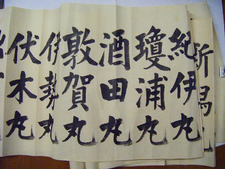 新潟
紀伊丸
瓊浦丸
酒田丸
敦賀丸
伊勢丸
伏木丸